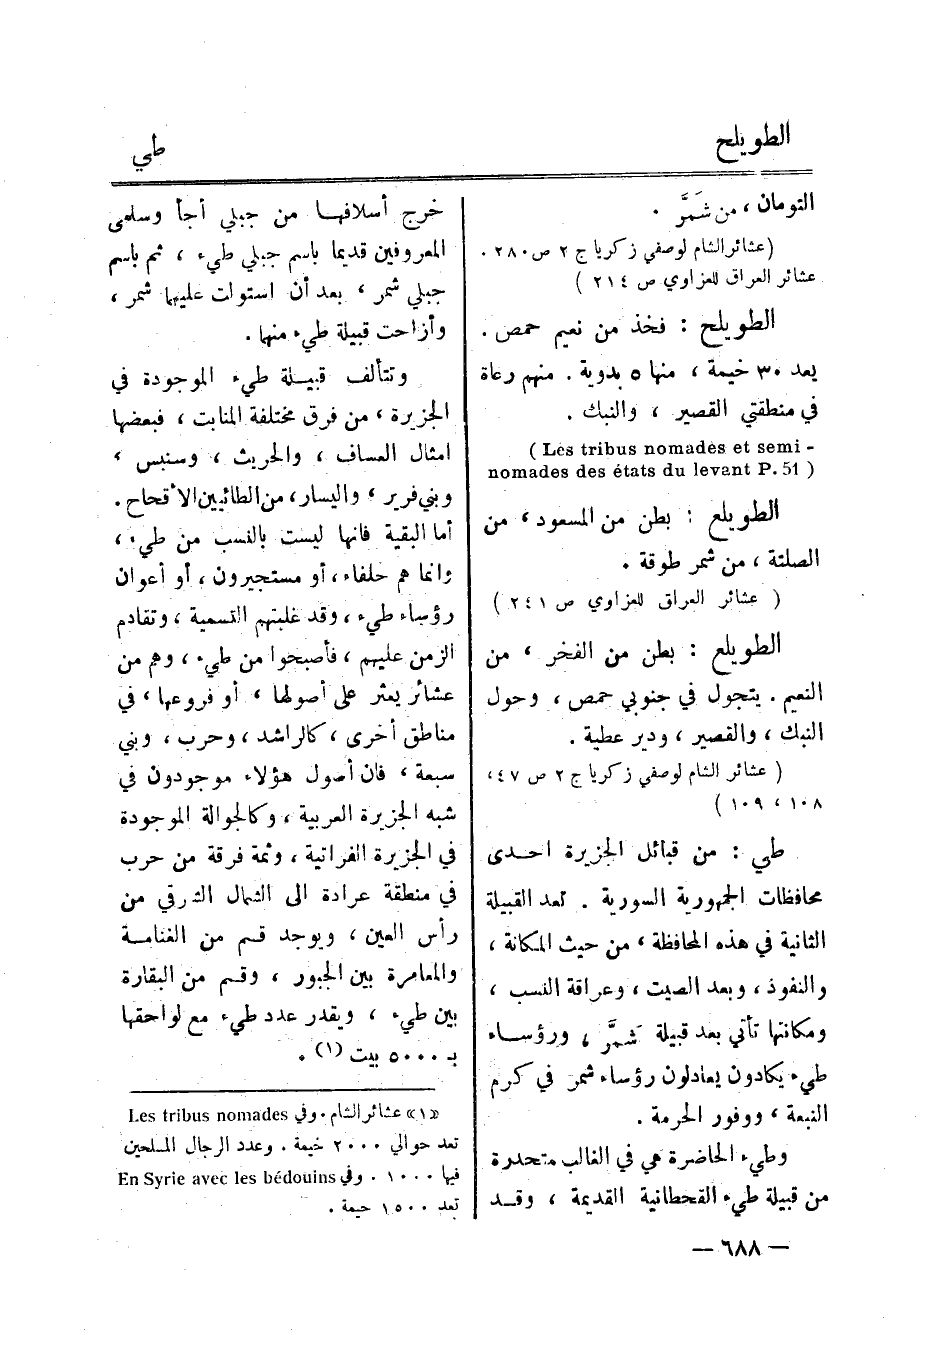 الطويلح
طي
التومان ، من شَمَّر .
(عشائر الشام لوصفي زكريا ج ٢ ص ٢٨٠ .
عشائر العراق للعزاوي ص ٢١٤ )
الطويلح : فخذ من نعيم حمص .
يعد ٣٠ خيمة ، منها ٥ بدوية . منهم رعاة
في منطقتي القصير ، والنبك .
( Les tribus nomades et semi -
nomades des états du levant P. 51 )
الطويلع : بطن من المسعود ، من
الصلتة ، من شمر طوقة .
( عشائر العراق للعزاوي ص ٢٤١ )
الطويلع : بطن من الفخر ، من
النعيم . يتجول في جنوبي حمص ، وحول
النبك ، والقصير ، ودير عطية .
( عشائر الشام لوصفي زكريا ج ٢ ص ٤٧ ،
١٠٨ ، ١٠٩ )
طي : من قبائل الجزيرة احدى
محافظات الجمهورية السورية . تعد القبيلة
الثانية في هذه المحافظة ، من حيث المكانة ،
والنفوذ ، وبعد الصيت ، وعراقة النسب ،
ومكانتها تأتي بعد قبيلة شمَّر ، ورؤساء
طيء يكادون يعادلون رؤساء شمر في كرم
النبعة ، ووفور الحرمة .
وطيء الحاضرة هي في الغالب متحدرة
من قبيلة طيء القحطانية القديمة ، وقد
خرج أسلافها من جبلي أجأ وسلمى
المعروفين قديما باسم جبلي طيء ، ثم باسم
جبلي شمر ، بعد أن استولت عليها شمر ،
وأزاحت قبيلة طيء منها .
وتتألف قبيلة طيء الموجودة في
الجزيرة ، من فرق مختلفة المنابت ، فبعضها
امثال العساف ، والحريث ، وسنبس ،
وبني فرير ، واليسار ، من الطائيين الأقحاح .
أما البقية فانها ليست بالنسب من طيء ،
وانما هم حلفاء ، أو مستجيرون ، أو أعوان
رؤساء طيء ، وقد غلبتهم التسمية ، وتقادم
الزمن عليهم ، فأصبحوا من طيء ، وهم من
عشائر يعثر على أصولها ، أو فروعها ، في
مناطق أخرى ، كالراشد ، وحرب ، وبني
سبعة ، فان أصول هؤلاء موجودون في
شبه الجزيرة العربية ، وكالجوالة الموجودة
في الجزيرة الفراتية ، وثمة فرقة من حرب
في منطقة عرادة الى الشمال الشرقي من
رأس العين ، ويوجد قسم من الغنامة
والمعامرة بين الجبور ، وقسم من البقارة
بين طيء ، ويقدر عدد طيء مع لواحقها
بـ ٥٠٠٠ بيت (١) .
«١» عشائر الشام . وفي Les tribus nomades
تعد حوالي ٢٠٠٠ خيمة . وعدد الرجال المسلحين
فيها ١٠٠٠ . وفي En Syrie avec les bédouins
تعد ١٥٠٠ خيمة .
— ٦٨٨ —